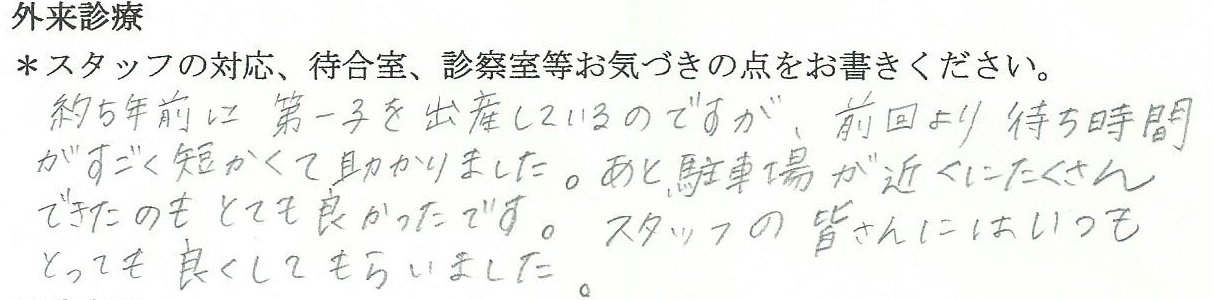 外来診療
＊スタッフの対応、待合室、診察室等お気づきの点をお書きください。
約5年前に第一子を出産しているのですが、前回より待ち時間
がすごく短かくて助かりました。あと、駐車場が近くにたくさん
できたのもとても良かったです。スタッフの皆さんにはいつも
とっても良くしてもらいました。